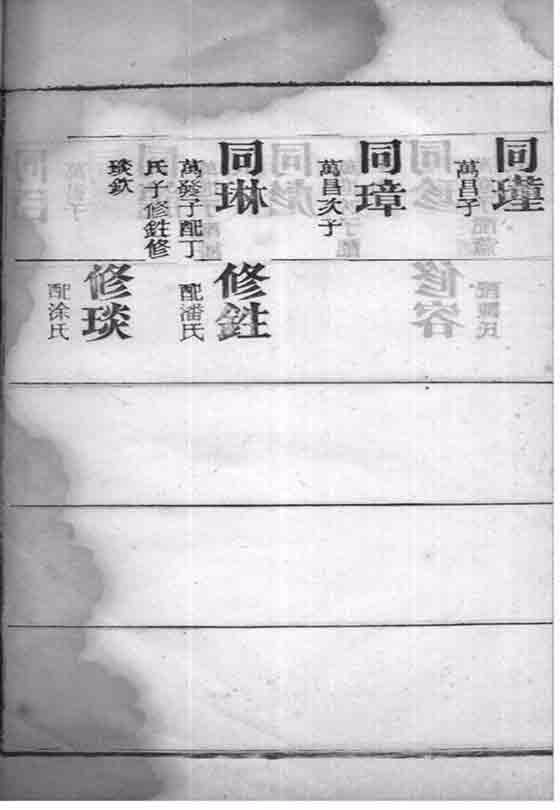 同瑾
萬昌子
同璋
萬昌次子
同琳
萬發子配丁
氏子修鉎修
琰欽
修鉎
配潘氏
修琰
配涂氏